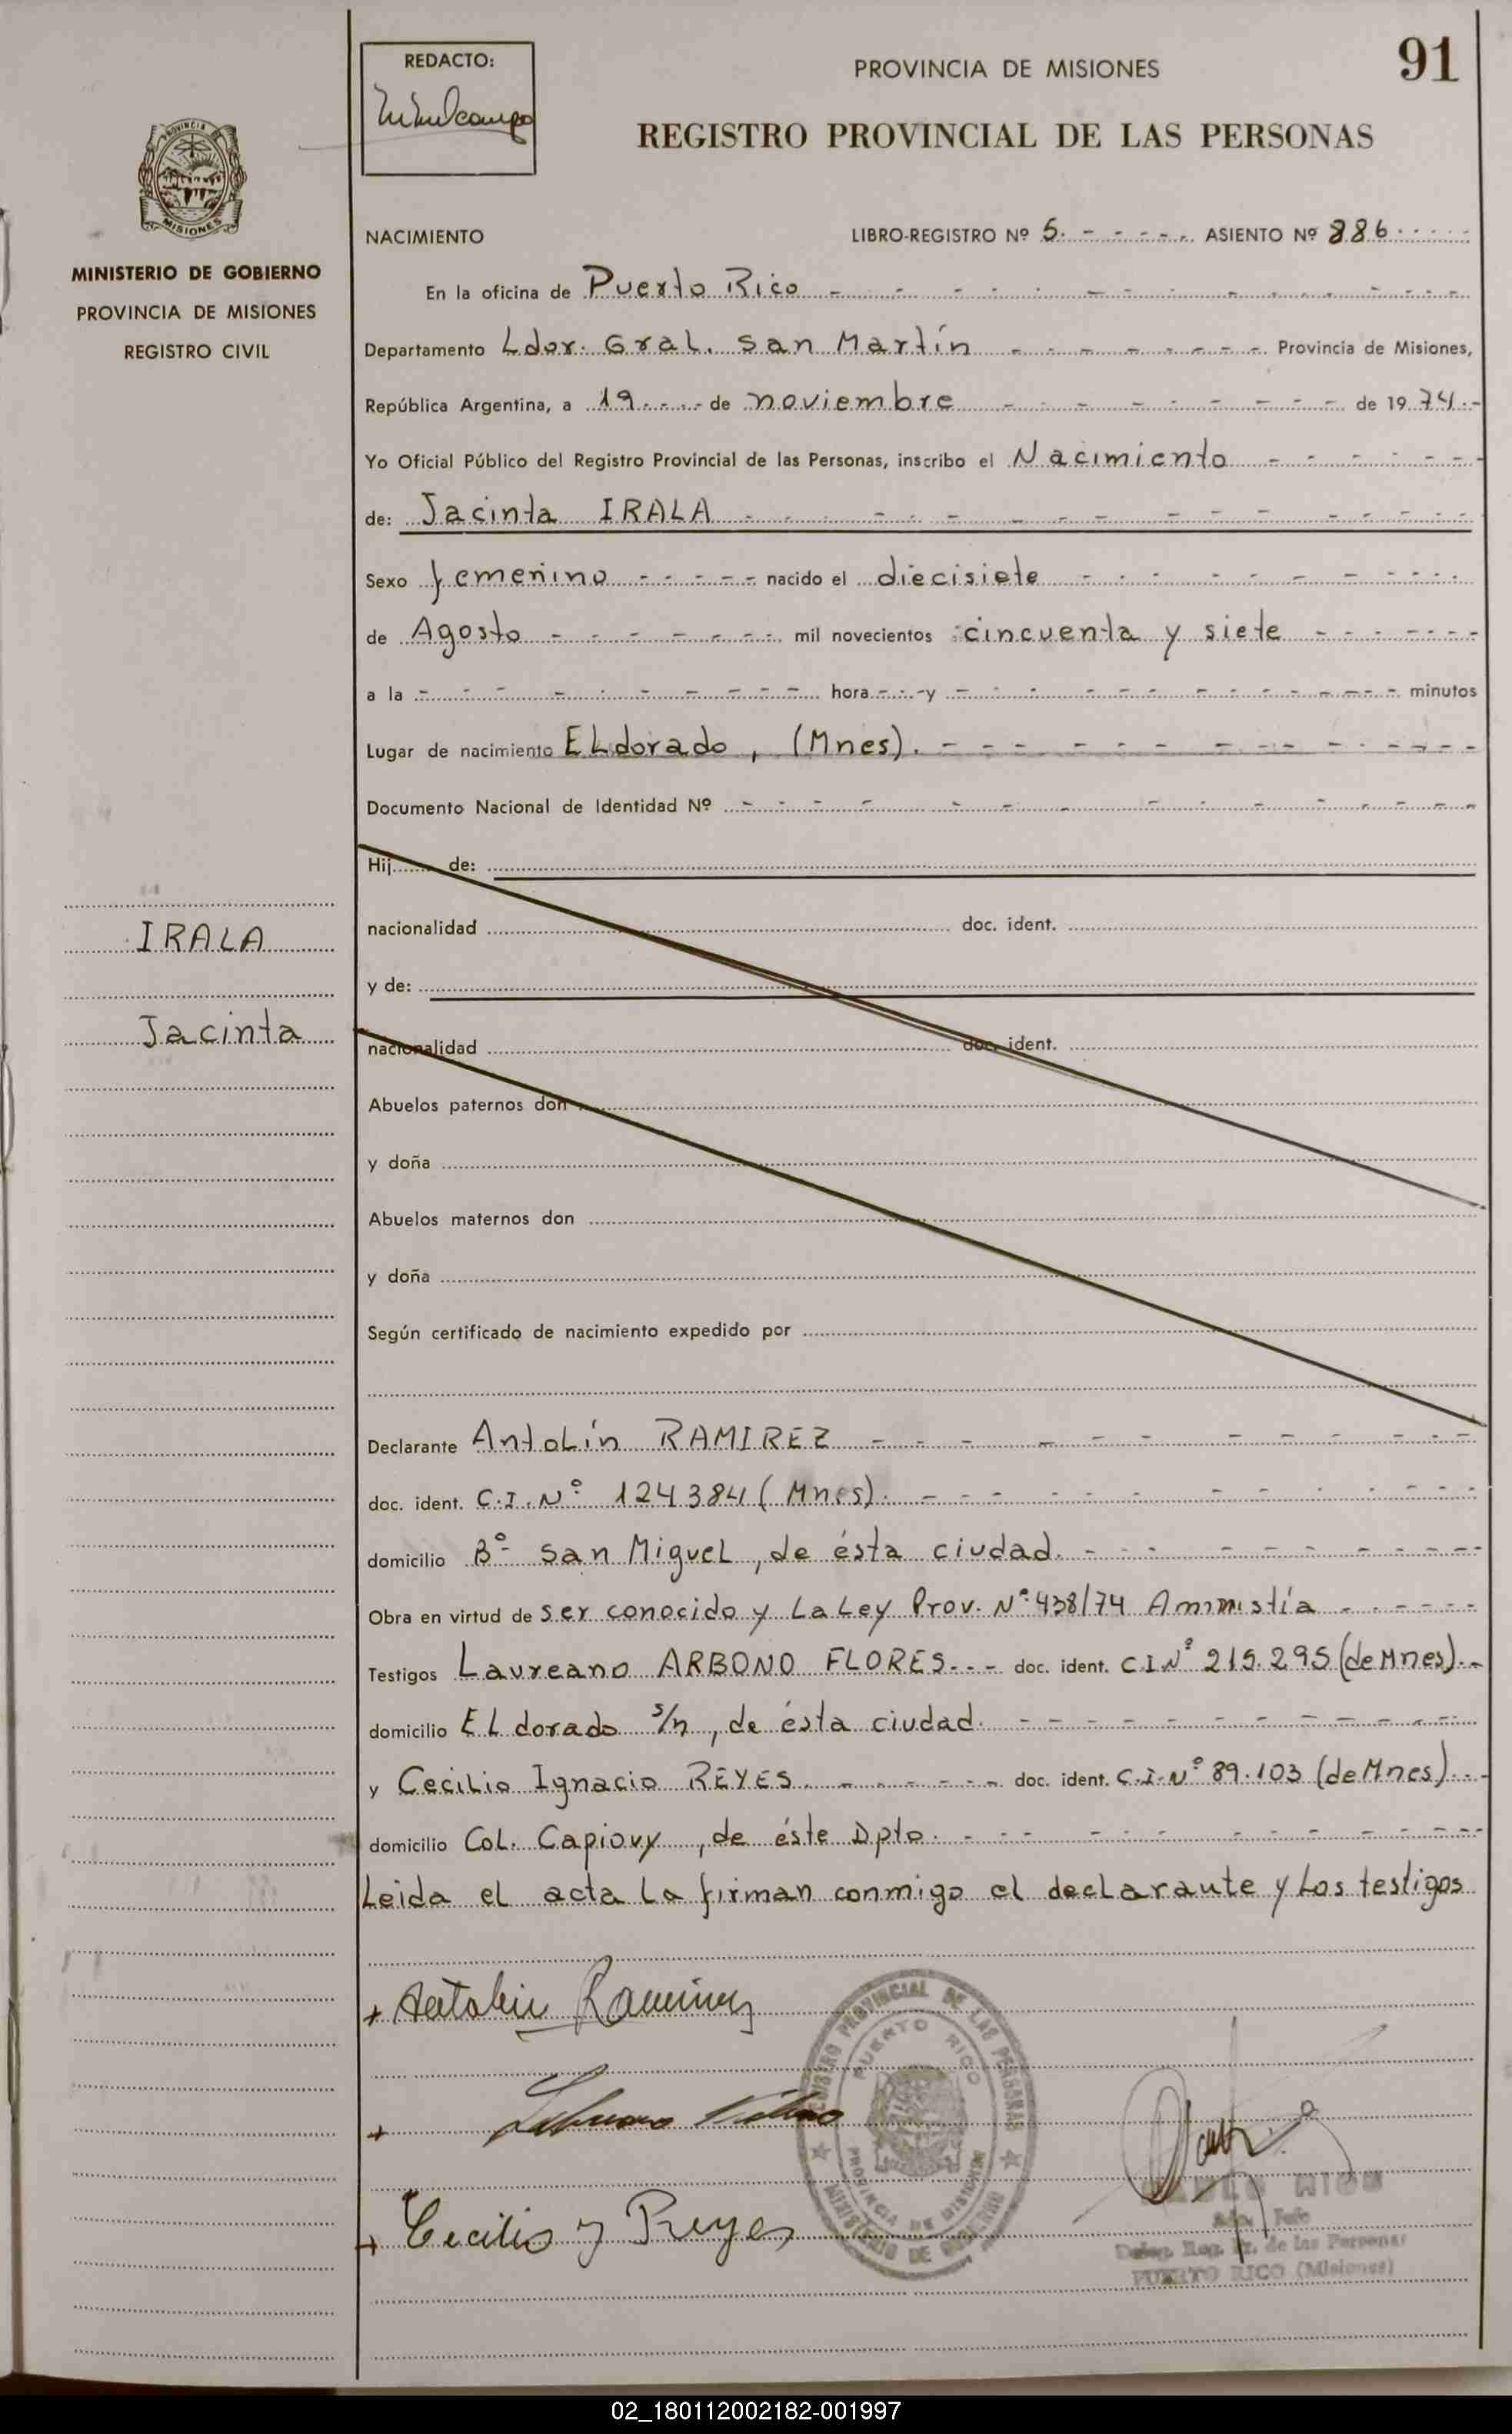 91
REDACTO:
PROVINCIA DE MISIONES
REGISTRO PROVINCIAL DE LAS PERSONAS
PROVINCIA
MISIONES
MINISTERIO DE GOBIERNO
PROVINCIA DE MISIONES
REGISTRO CIVIL
NACIMIENTO LIBRO-REGISTRO Nº 5. - - - - - ASIENTO Nº 886
En la oficina de Puerto Rico
Departamento Ldor. Gral. San Martín Provincia de Misiones,
República Argentina, a 19 de noviembre de 19 74.-
Yo Oficial Público del Registro Provincial de las Personas, inscribo el Nacimiento
de: Jacinta IRALA
Sexo femenino nacido el diecisiete
de Agosto mil novecientos cincuenta y siete
a la hora y minutos
Lugar de nacimiento ELdorado, (Mnes).
Documento Nacional de Identidad Nº
Hij de:
nacionalidad doc. ident.
y de:
nacionalidad doc. ident.
Abuelos paternos don
y doña
Abuelos maternos don
y doña
Según certificado de nacimiento expedido por
IRALA
Jacinta
Declarante Antolín RAMIREZ
doc. ident. C.I.Nº 124384 (Mnes).
domicilio Bº San Miguel, de ésta ciudad.
Obra en virtud de ser conocido y La Ley Prov. Nº 438/74 Ammistía
Testigos Laureano ARBONO FLORES doc. ident. C.I.Nº 215.295 (de Mnes).
domicilio ELdorado s/n, de ésta ciudad.
y Cecilio Ignacio REYES doc. ident. C.I.Nº 89.103 (de Mnes).
domicilio Col. Capiovy, de éste Dpto.
Leida el acta la firman conmigo el declarante y los testigos
+ Antolin Ramirez
+
+ Cecilio y Reyes
REGISTRO PROVINCIAL DE LAS PERSONAS
PUERTO RICO
PROVINCIA DE MISIONES
MINISTERIO DE GOBIERNO
Jefe
Deleg. Reg. Pr. de las Personas
PUERTO RICO (Misiones)
02_180112002182-001997